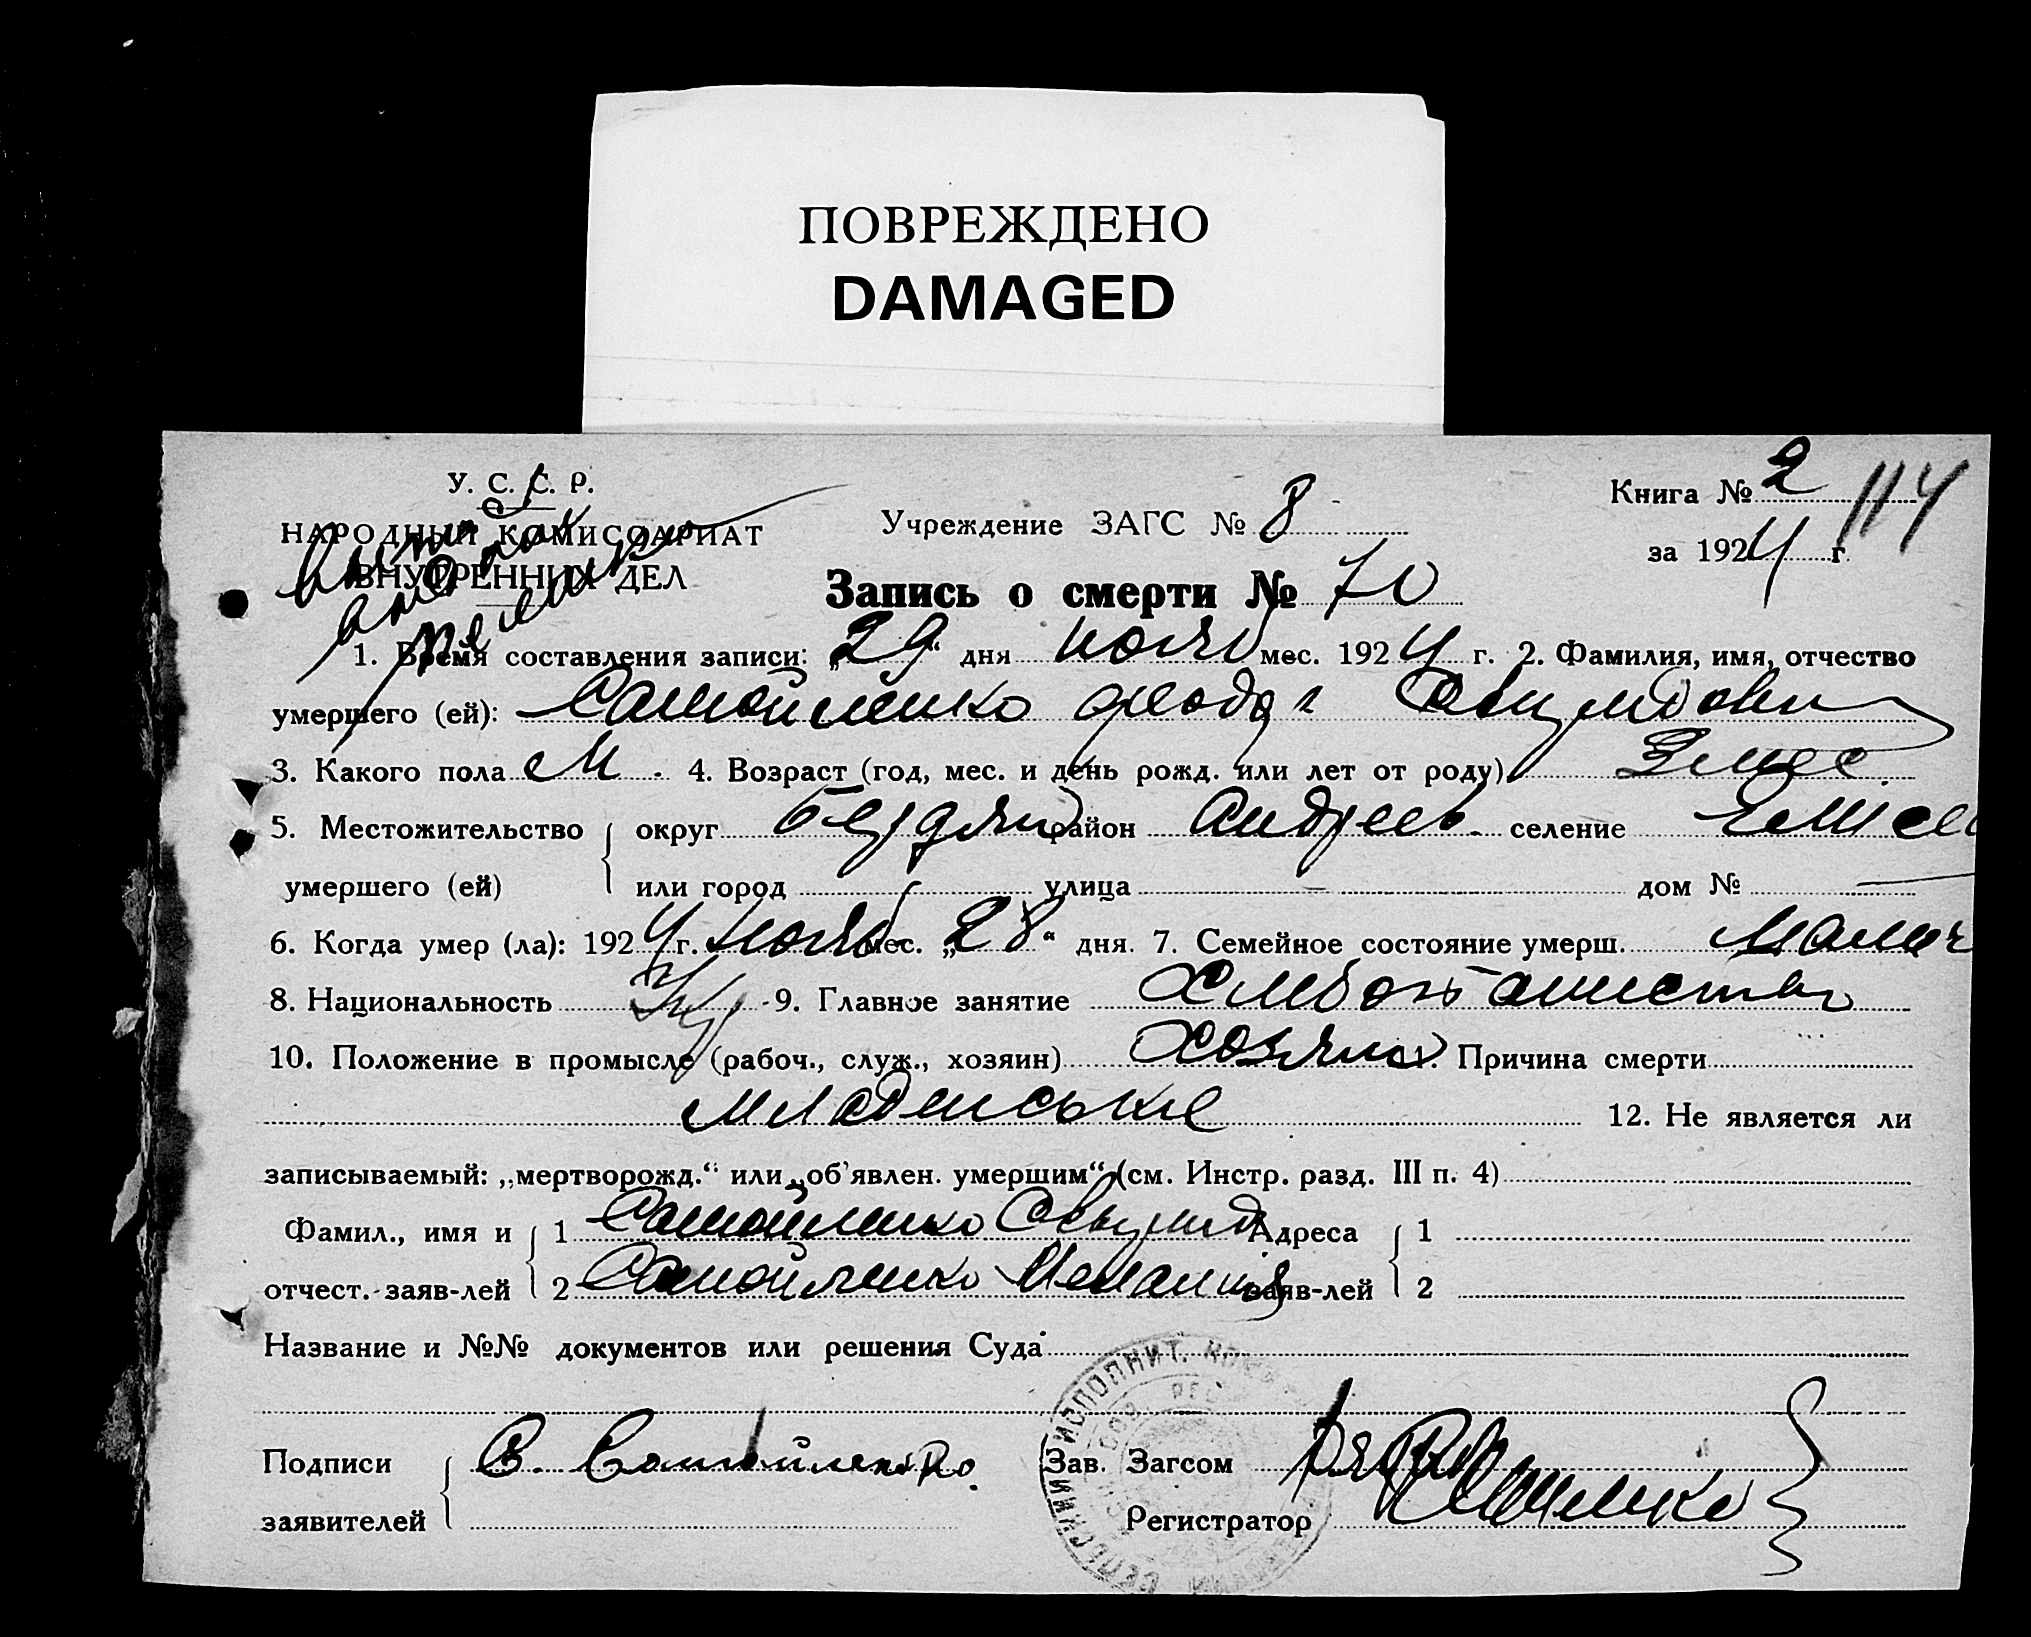 ПОВРЕЖДЕНО
DAMAGED
У. С. С. Р.
НАРОДНЫЙ КОМИССАРИАТ
ВНУТРЕННИХ ДЕЛ
Учреждение ЗАГС № 8
Книга № 2 114
за 1924 г.
Запись о смерти № 70
1. Время составления записи: „29“ дня нояб мес. 1924 г. 2. Фамилия, имя, отчество
умершего (ей): Самойленко
3. Какого пола М. 4. Возраст (год, мес. и день рожд. или лет от роду) 3 мес.
5. Местожительство округ Бердян район Андреев. селение
умершего (ей) или город улица — дом № —
6. Когда умер (ла): 1924 г. нояб мес. „28“ дня. 7. Семейное состояние умерш.
8. Национальность Укр 9. Главное занятие
10. Положение в промысле (рабоч., служ., хозяин) Хозяин. Причина смерти
младенська 12. Не является ли
записываемый: „мертворожд.“ или „об'явлен. умершим“ (см. Инстр. разд. III п. 4)
Фамил., имя и 1 Самойленко Адреса 1
отчест. заяв-лей 2 Самойленко заяв-лей 2
Название и №№ документов или решения Суда
СЕЛЬСКИЙ ИСПОЛНИТ.
Подписи С. Самойленко. Зав. Загсом
заявителей Регистратор